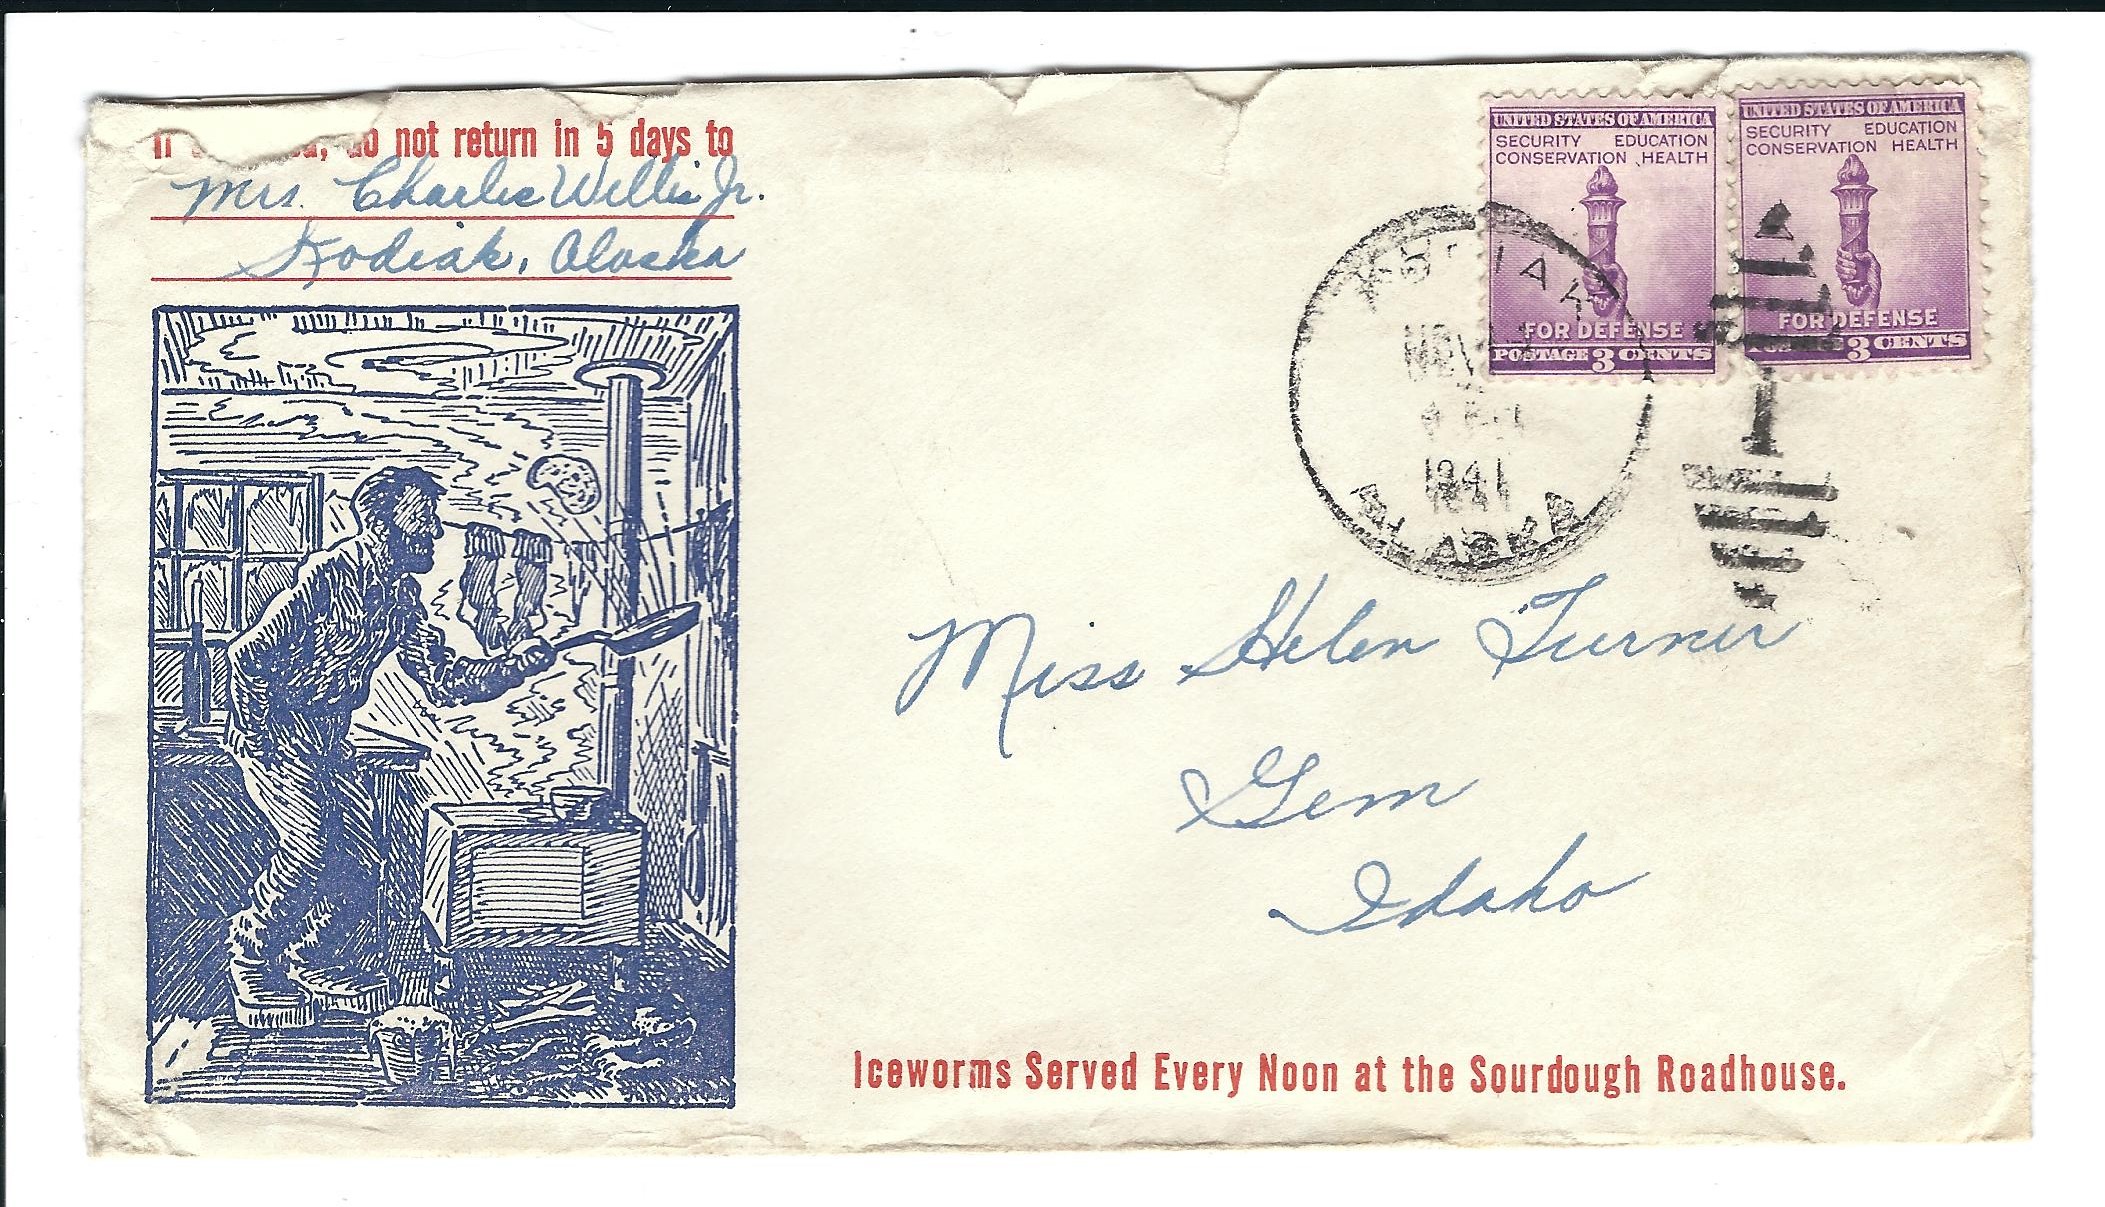 do not return in 5 days to
Mrs. Charles Willis Jr.
Kodiak, Alaska
UNITED STATES OF AMERICA
SECURITY EDUCATION
CONSERVATION HEALTH
FOR DEFENSE
POSTAGE 3 CENTS
UNITED STATES OF AMERICA
SECURITY EDUCATION
CONSERVATION HEALTH
FOR DEFENSE
3 CENTS
KODIAK
NOV
1941
ALASKA
Miss Helen Turner
Gem
Idaho
Iceworms Served Every Noon at the Sourdough Roadhouse.